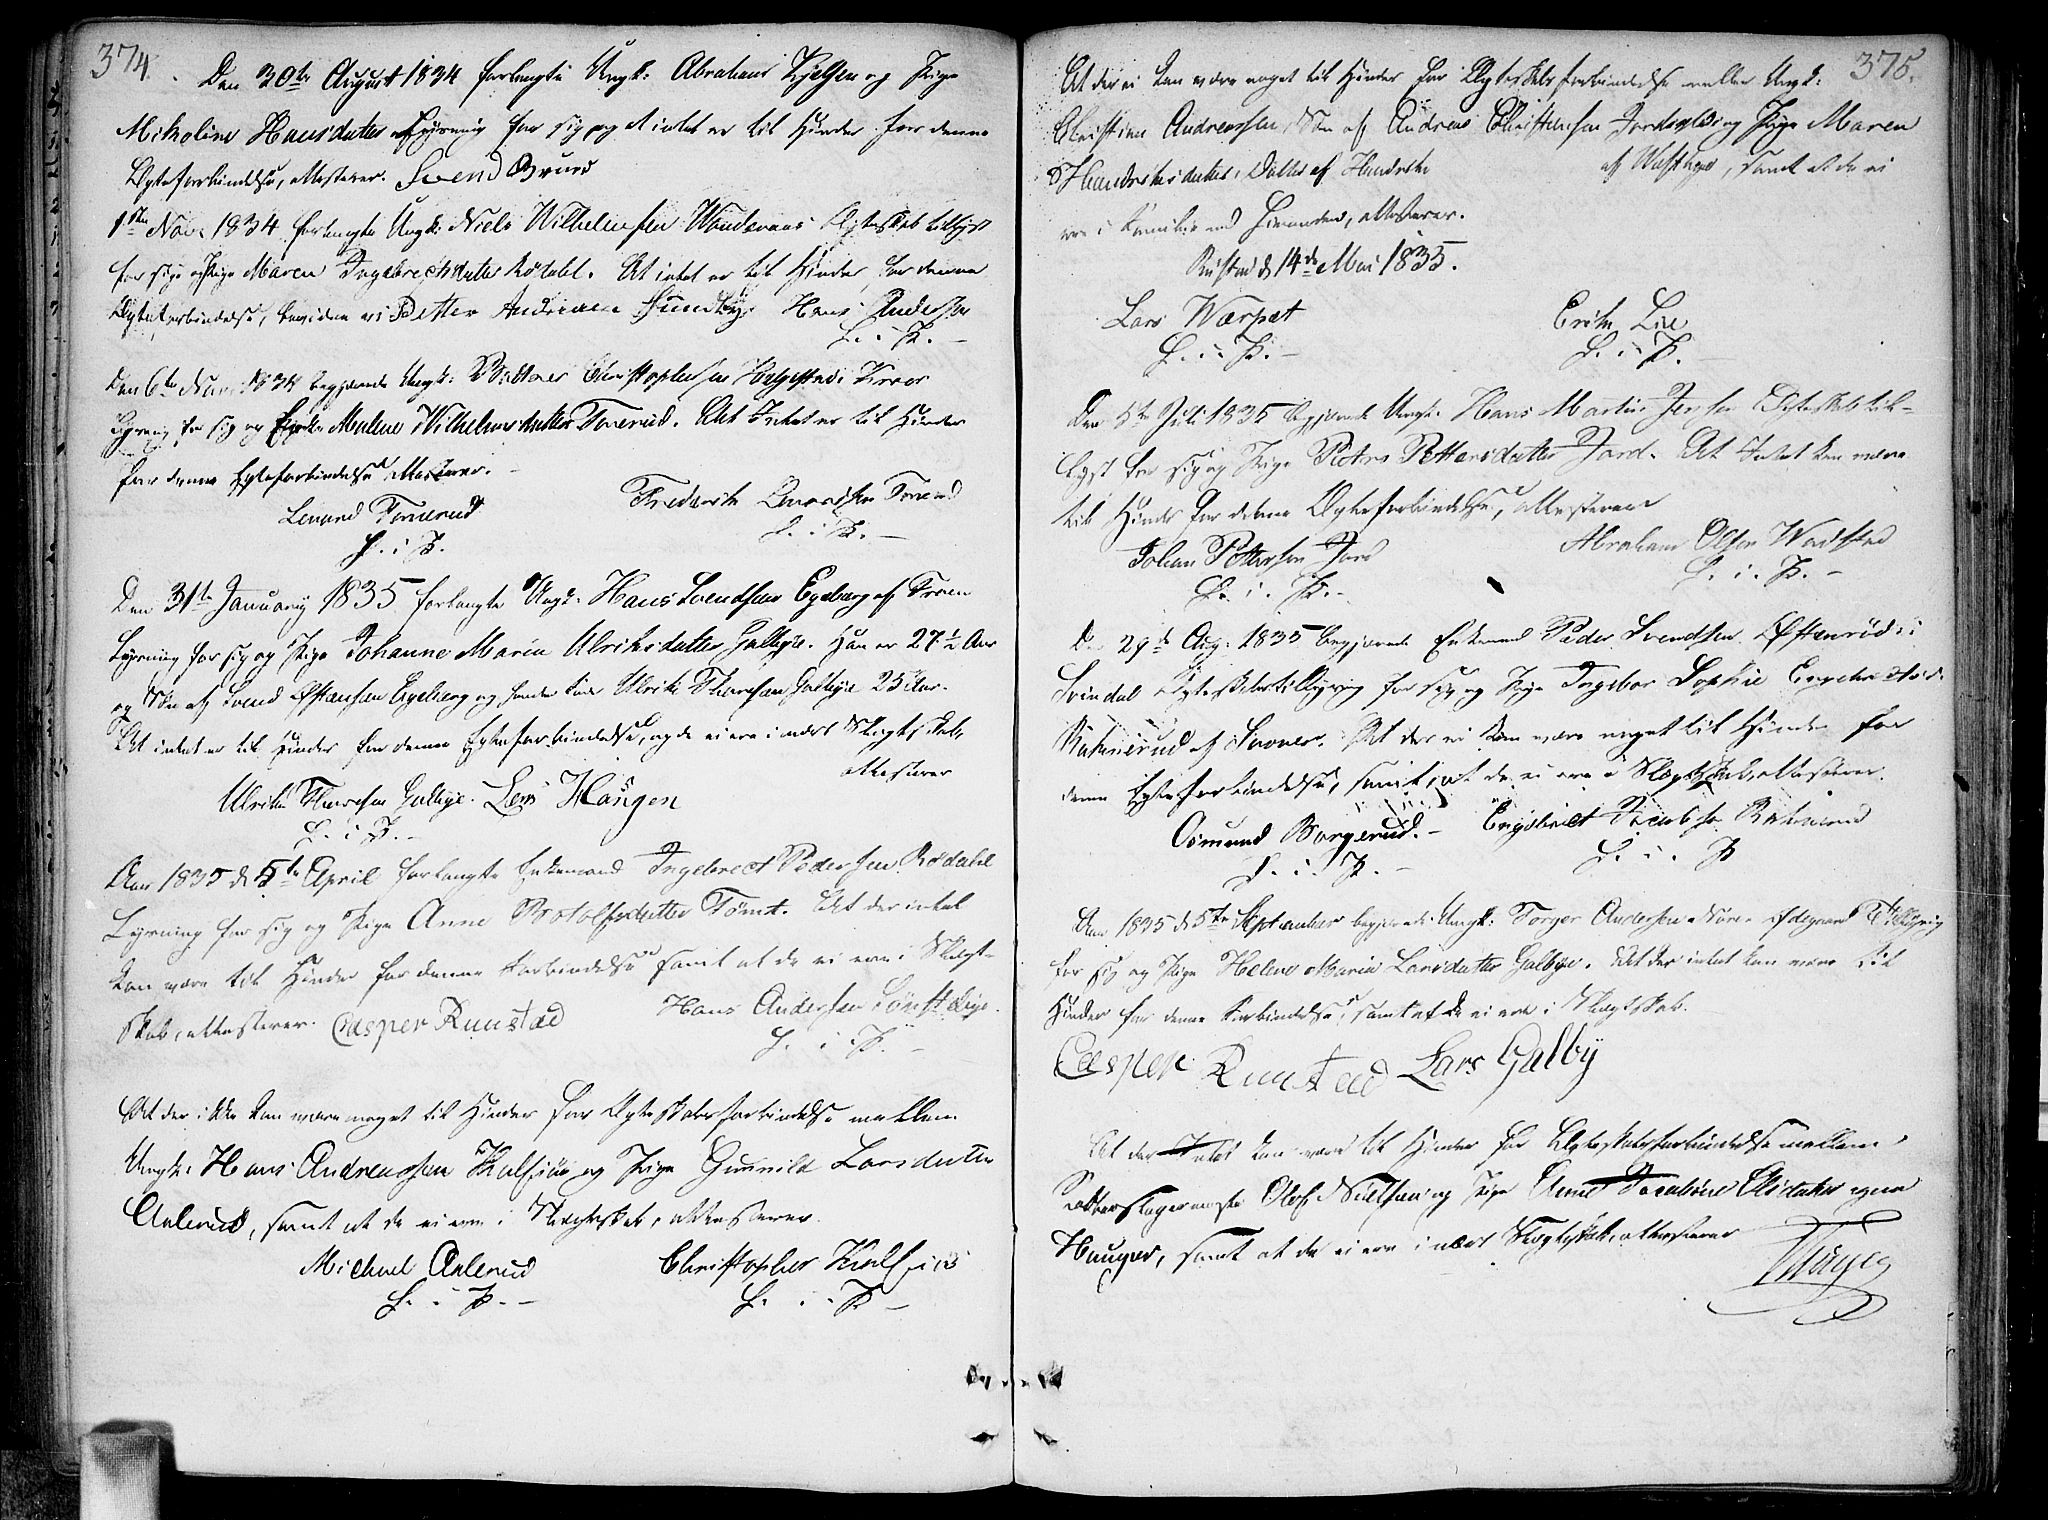 374.
Den 30te August 1834 forlangte Ungk: Abraham Kjelsen og Pige
Mikoline Hansdatter Lysning for sig, og at intet er til Hinder for denne
Ægteforbindelse, attesterer. Svend Bruus
1ste Nov: 1834 forlangte Ungk: Niels Wilhelmsen Ægteskab tillyst
for sig og Pige Maren Ingebrechsdatter Rødahl. At intet er til Hinder for denne
Ægteforbindelse, bevidne vi Petter Andreasen Sundby. Hans Andersen
L. i. P. –
Den 6te Nov: 1834 begjærede Ungk: Christophersen
Lysning for sig og Pige Malene Wilhelmsdatter Tonerud. At Intet er til Hinder
for denne Egteforbindelse attesterer.
Lenard Tonerud Frederik Tonerud
L. i. P. L. i. P. –
Den 31te January 1835 forlangte Ungk: Hans Svendsen Egeberg af Froen
Lysning for sig og Pige Johanne Maria Ulriksdatter Galbye. Han er 27 ½ Aar
og Søn af Svend Østensen Egeberg og hendes Fader Ulrik Thoresen Galbye 25 Aar.
At intet er til Hinder for denne Egteforbindelse, og de ei ere i nært Slægtskab,
attesterer
Ulrik Thoresen Galbye. Lars Haugen
L. i. P. –
Aar 1835 d 5te April forlangte Enkemand Ingebrect Pedersen Rødahl
Lysning for sig og Pige Anne Botolfsdatter Tømt. At der intet
kan være til Hinder for denne Forbindelse samt at de ei ere i Slægt-
skab, attesterer. Casper Rustad Hans Andersen
L. i. P. –
At der ikke kan være noget til Hinder for Ægteskabsforbindelse mellem
Ungk: Hans Andreassen Kalsiøe og Pige Gunnild Larsdatter
Aalerud, samt at de ei ere i Slægtskab, attesterer.
Michael Aalerud Christopher Kalsiøe
L. i. P. – L. i. P. –
375.
At der ei kan være noget til Hinder for Ægteskabsforbindelse mellem Ungk:
Christian Andreassen, Søn af Andreas Christensen og Pige Maren
Hendriksdatter, Datter af Hendrik af Westbye, samt at de ei
ere i Familie med hinanden, attesterer.
Rustad d 14de Mai 1835.
Lars Warpet Erik Lie
L. i. P. – L. i. P.
Den 5te Juli 1835 begjærede Ungk: Hans Martin Jensen Ægteskab til-
lyst for sig og Pige Petters Pettersdatter Jard. At Intet kan være
til Hinder for denne Ægteforbindelse, attesterer
Johan Pettersen Jard Abraham Olsen Wadsted
L. i. P. – L. i. P. –
D. 29de Aug: 1835 begjærede Enkemand Peder Svendsen Østenrød i
Svindal Ægteskabstillysning for sig og Pige Ingebor Sophie Engebretsd.
af Snoner. At der ei kan være noget til Hinder for
denne Egteforbindelse, samt at de ei ere i Slægtskab, attesterer.
Osmund Borgerud. – Engebret Jacobsen
L. i. P. – L. i. P
Aar 1835 d 5te September begjærede Ungk: Torger Andersen Nore Ødegaard Tillysning
for sig og Pige Helene Maria Larsdatter Galbye. At der intet kan være til
Hinder for denne Forbindelse, samt at de ei ere i Slægtskab.
Casper Runstad Lars Galby
At der Intet kan være til Hinder for Ægteskabsforbindelse mellem
Olof Nielsen og Pige Anne Jocabine Olsdatter
Hauger, samt at de ei ere i nært Slægtskab, attesterer